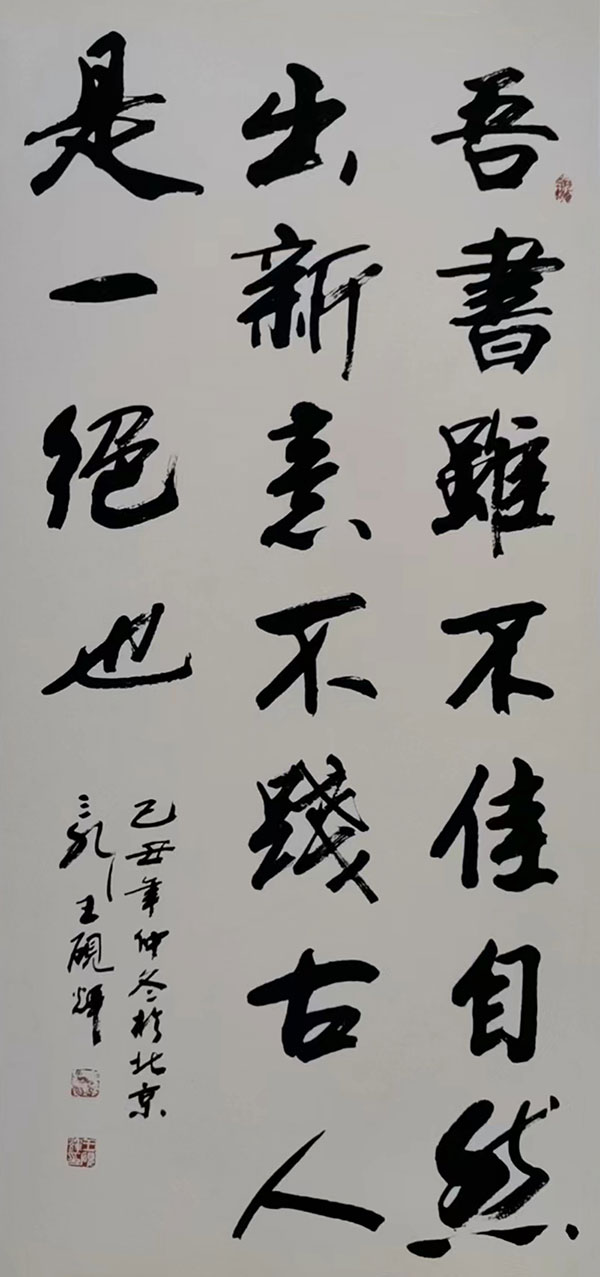 吾書雖不佳自然
出新意不踐古人
是一絕也
己丑年仲冬於北京
王硯輝